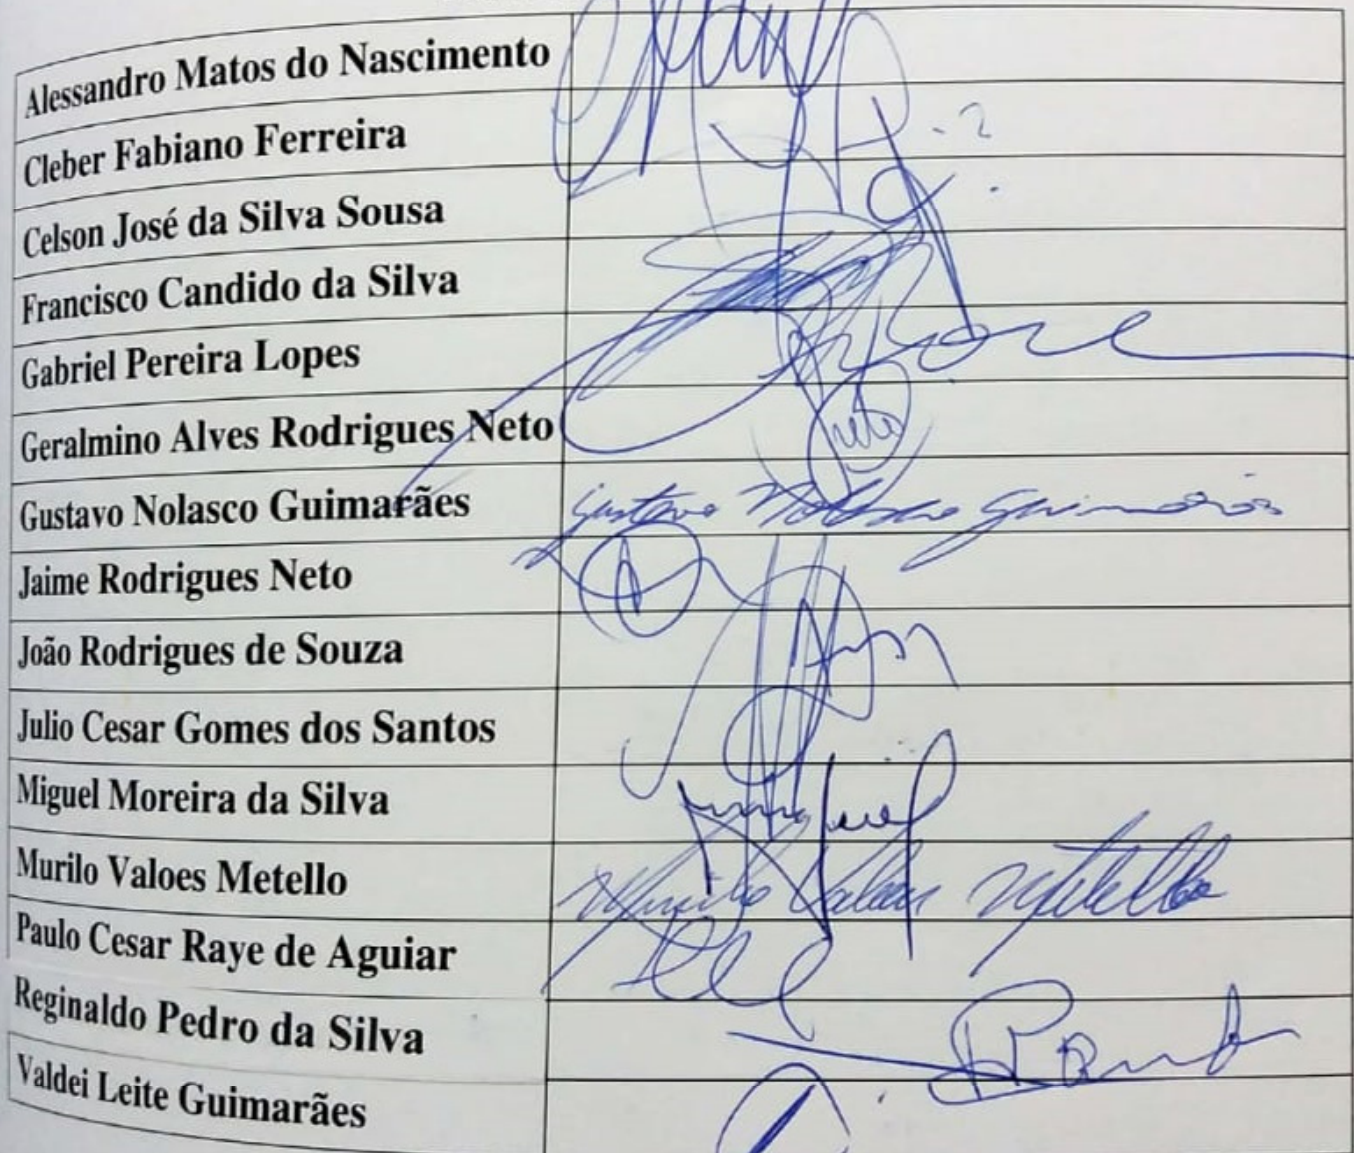 Alessandro Matos do Nascimento
Cleber Fabiano Ferreira
Celson José da Silva Sousa
Francisco Candido da Silva
Gabriel Pereira Lopes
Geralmino Alves Rodrigues Neto
Neto
Gustavo Nolasco Guimarães Gustavo Nolasco Guimarães
Jaime Rodrigues Neto
João Rodrigues de Souza
Julio Cesar Gomes dos Santos
Miguel Moreira da Silva Miguel
Murilo Valoes Metello Murilo Valoes Metello
Paulo Cesar Raye de Aguiar
Reginaldo Pedro da Silva
Valdei Leite Guimarães